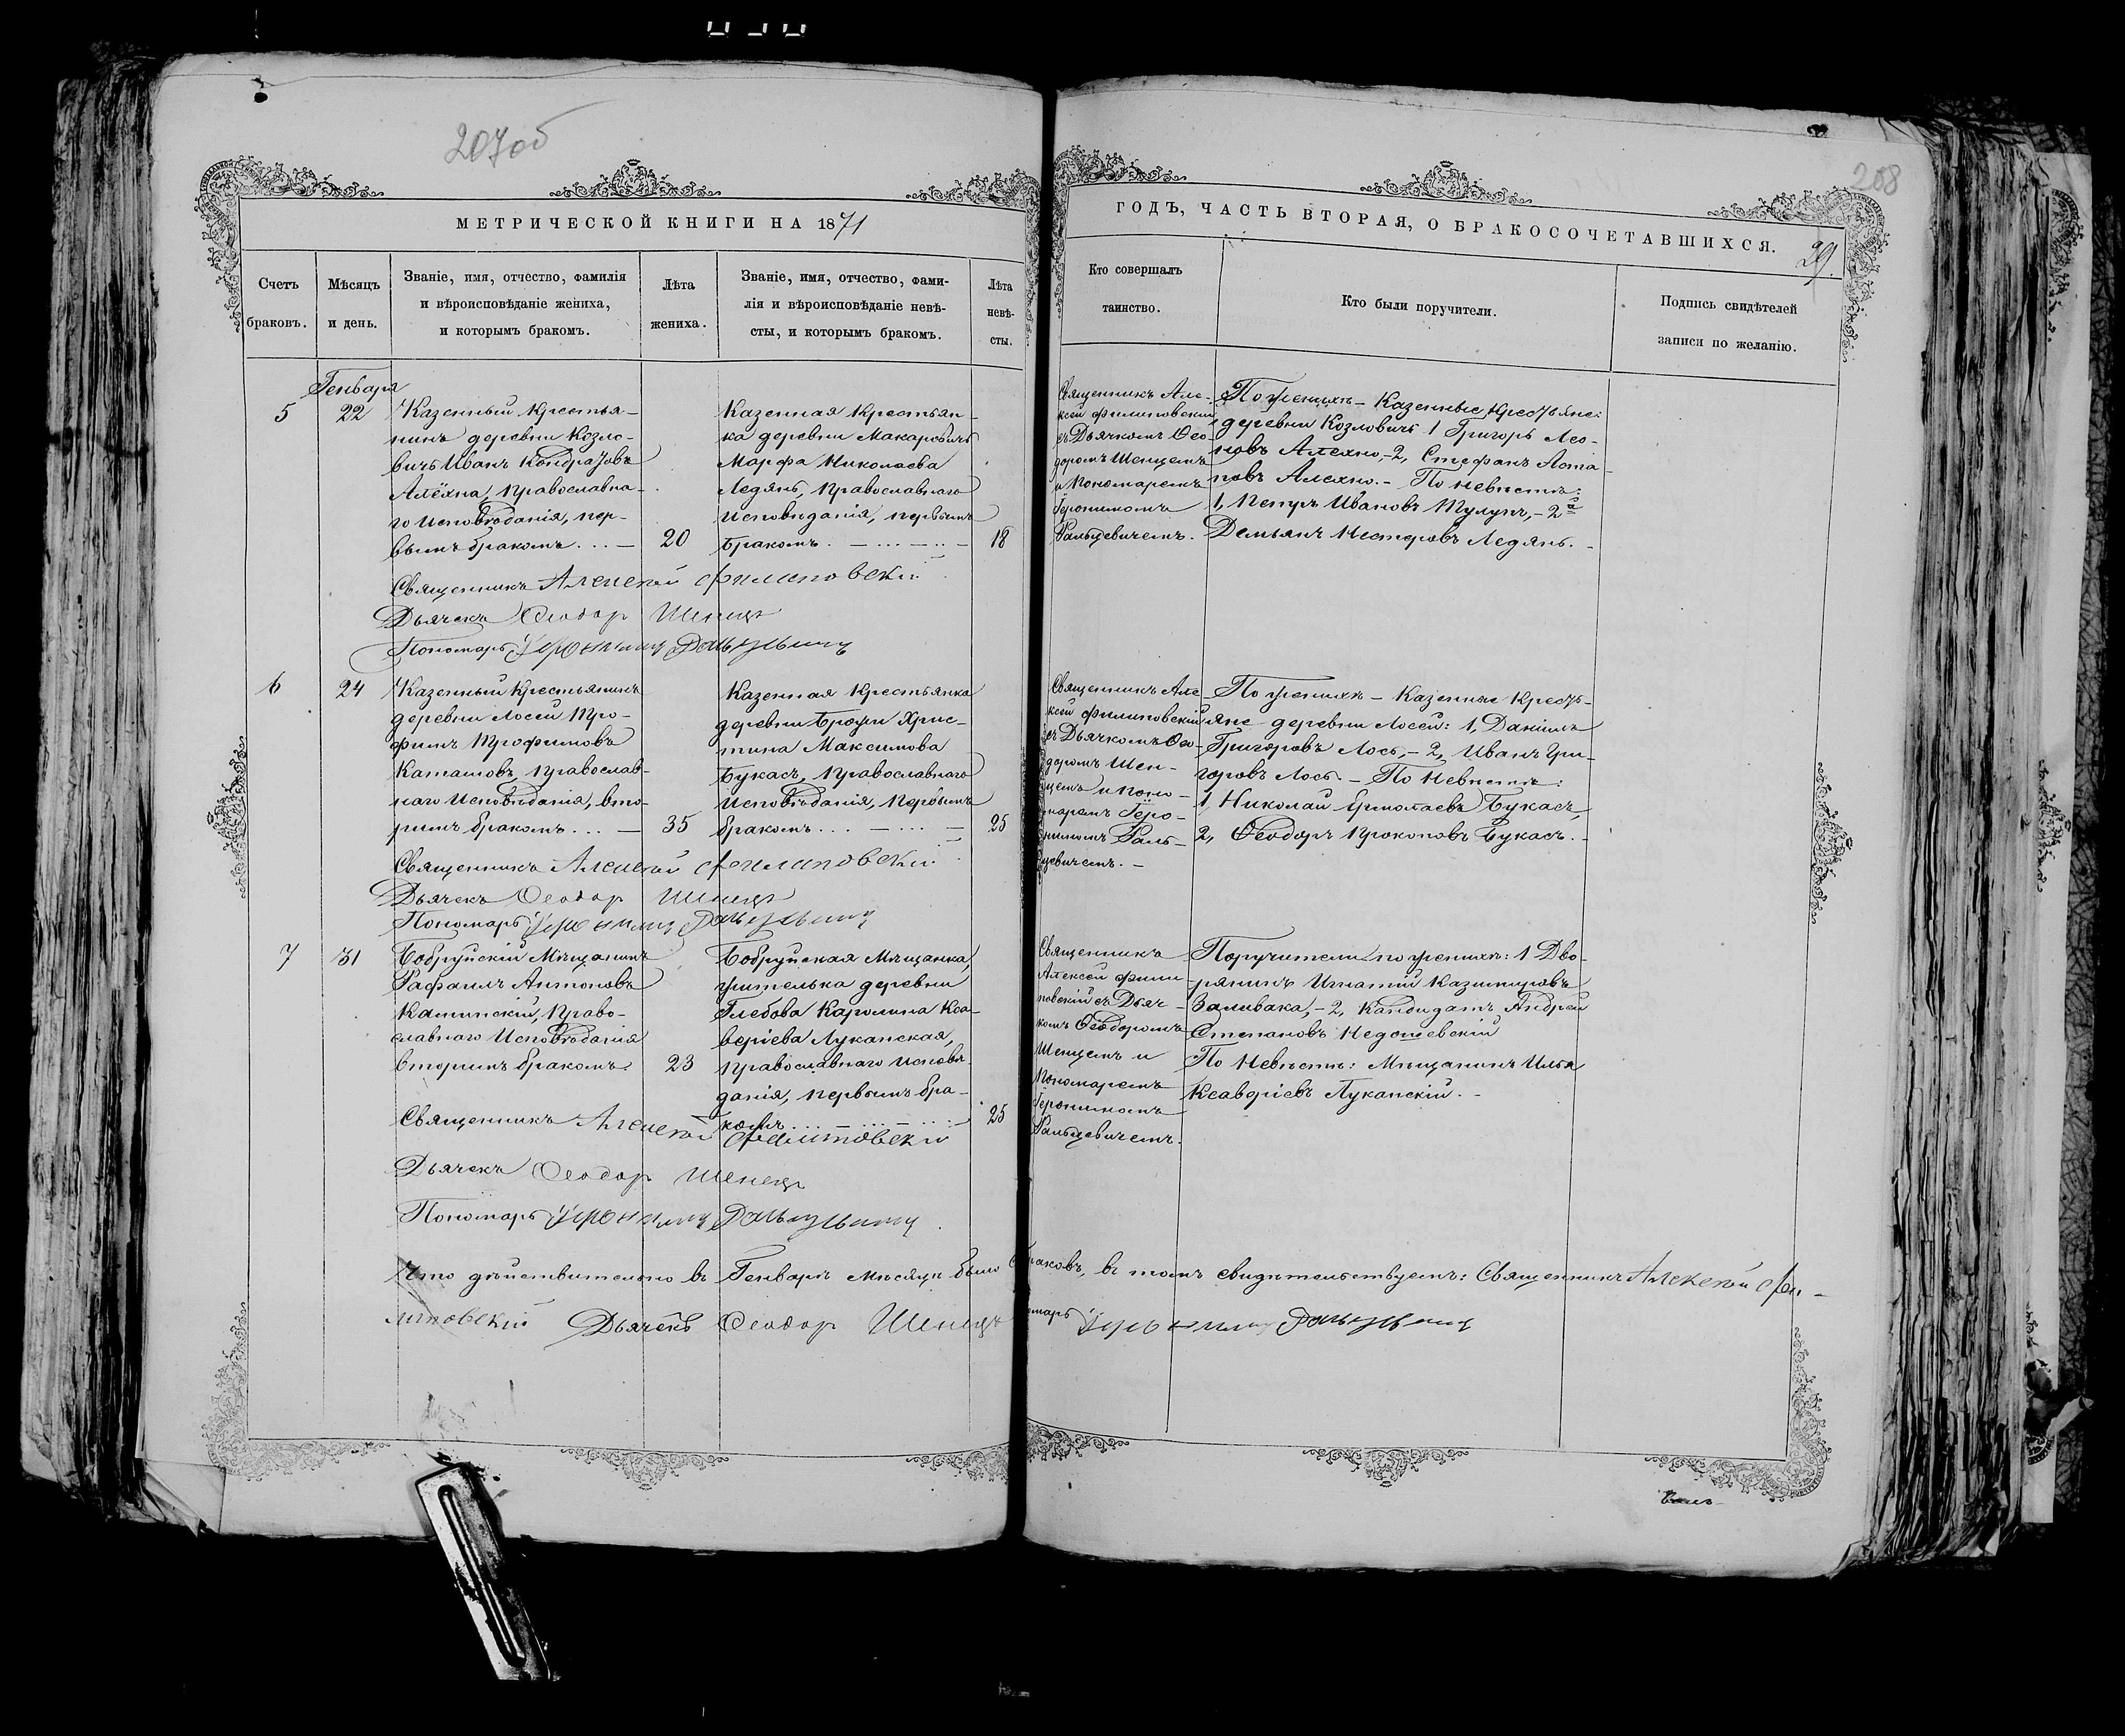 207об
208
МЕТРИЧЕСКОЙ КНИГИ НА 1871
ГОДЪ, ЧАСТЬ ВТОРАЯ, О БРАКОСОЧЕТАВШИХСЯ.
29.
Счетъ
браковъ.
Мѣсяцъ
и день.
Званіе, имя, отчество, фамилія
и вѣроисповѣданіе жениха,
и которымъ бракомъ.
Лѣта
жениха.
Званіе, имя, отчество, фами-
лія и вѣроисповѣданіе невѣ-
сты, и которымъ бракомъ.
Лѣта
невѣ-
сты.
Кто совершалъ
таинство.
Кто были поручители.
Подпись свидѣтелей
записи по желанію.
Генваря
5
22
Казенный крестья-
нинъ деревни Козло-
вичь Иванъ Кондратовъ
Алёхна, Православна-
го Исповѣданія, пер-
вымъ бракомъ. . . —
20
Казенная крестьян-
ка деревни Макаровичь
Марфа Николаева
Ледянь, Православнаго
Исповѣданія, первымъ
бракомъ. — . . . — . . —
18
Священникъ Але-
ксей Филиповскій
съ Дьячкомъ Ѳео-
доромъ Шенцемъ
и Пономаремъ
Геронимомъ
Ральцевичемъ.
По женихѣ — Казенные крестьяне:
деревни Козловичь 1 Григорь Лео-
новъ Алехно, — 2, Стефанъ Аста-
повъ Алехно. — По невѣстѣ:
1, Петръ Ивановъ Тулупъ, — 2й
Демьянъ Нестеровъ Ледянь. —
Священникъ Алексей Филиповскій
Дьячекъ Ѳеодор Шенецъ
Пономарь Геронимъ Ральцевичъ
6
24
Казенный Крестьянинъ
деревни Лосей Тро-
фимъ Трофимовъ
Каташовъ, Православ-
наго Исповѣданія, вто-
рымъ бракомъ. . . —
35
Казенная Крестьянка
деревни Брожи Хрис-
тина Максимова
Букасъ, Православнаго
Исповѣданія, первымъ
бракомъ. . . — . . . —
25
Священникъ Але-
ксей Филиповскій
съ Дьячкомъ Ѳео-
доромъ Шен-
цемъ и Поно-
маремъ Геро-
нимомъ Раль-
цевичемъ. —
По женихѣ — Казенные кресть-
яне деревни Лосей: 1, Даніилъ
Григоровъ Лось, — 2, Иванъ Гри-
горовъ Лось. — По Невѣстѣ:
1, Николай Ермолаевъ Букасъ,
2, Ѳеодоръ Прокоповъ Букасъ. —
Священникъ Алексей Филиповскій
Дьячекъ Ѳеодор Шенецъ
Пономарь Геронимъ Ральцевичъ
7
31
Бобруйскій Мѣщанинъ
Рафаилъ Антоновъ
Каминскій, Право-
славнаго Исповѣданія
вторымъ бракомъ.
23
Бобруйская Мѣщанка,
жителька деревни
Глебова Каролина Кса-
веріева Луканская,
православнаго Исповѣ-
данія, первымъ бра-
комъ . . . — . . . — . . . —
25
Священникъ
Алексей Фили-
повскій съ Дьяч-
комъ Ѳеодоромъ
Шенцемъ и
Пономаремъ
Геронимомъ
Ральцевичемъ.
Поручители по женихѣ: 1 Дво-
рянинъ Игнатій Казимировъ
Заливака, — 2, Кандидатъ Андрей
Степановъ Недошевскій
По Невѣстѣ: Мѣщанинъ Илья
Ксаверіевъ Луканскій. —
Священникъ Алексей Филиповскій
Дьячекъ Ѳеодор Шенецъ
Пономарь Геронимъ Ральцевичъ.
Что дѣйствительно въ Генварѣ Мѣсяцѣ было браковъ, въ томъ свидѣтельствуемъ: Священникъ Алексей Фи-
липовскій Дьячекъ Ѳеодор Шенецъ Пономарь Геронимъ Ральцевичъ